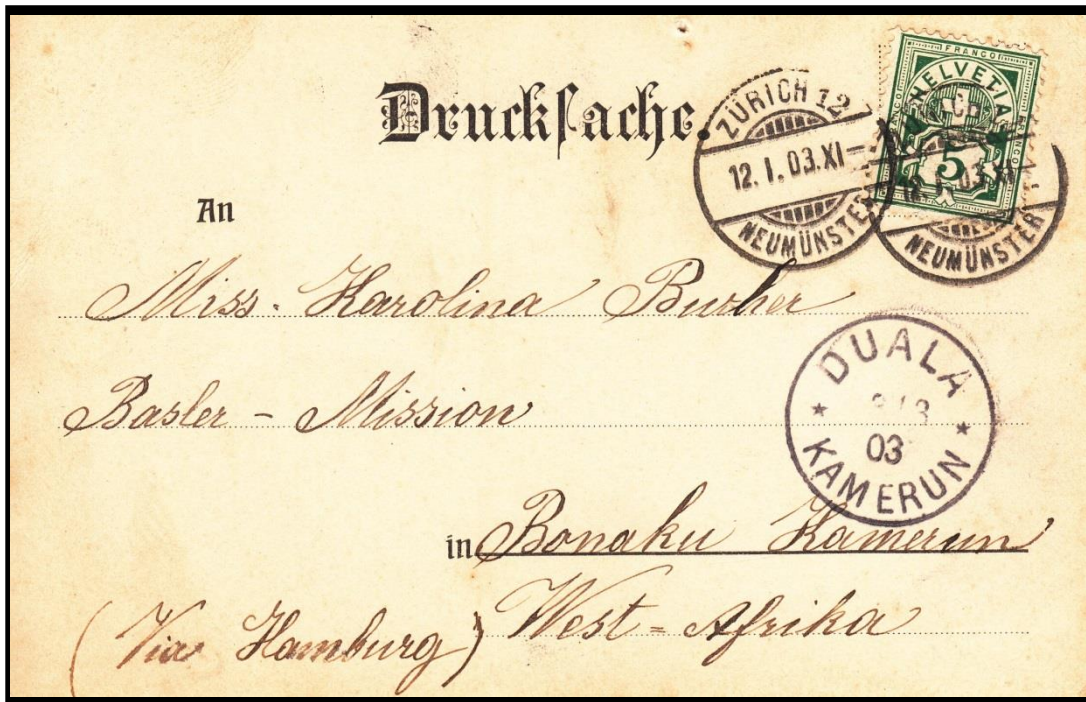 Druckſache.
ZÜRICH 12
12. I. 03. XI–
NEUMÜNSTER
FRANCO
HELVETIA
5
NEUMÜNSTER
An
Miss. Karolina Bucher
Basler - Mission
DUALA
03
KAMERUN
in Bonaku Kamerun
(Via Hamburg) West-Afrika